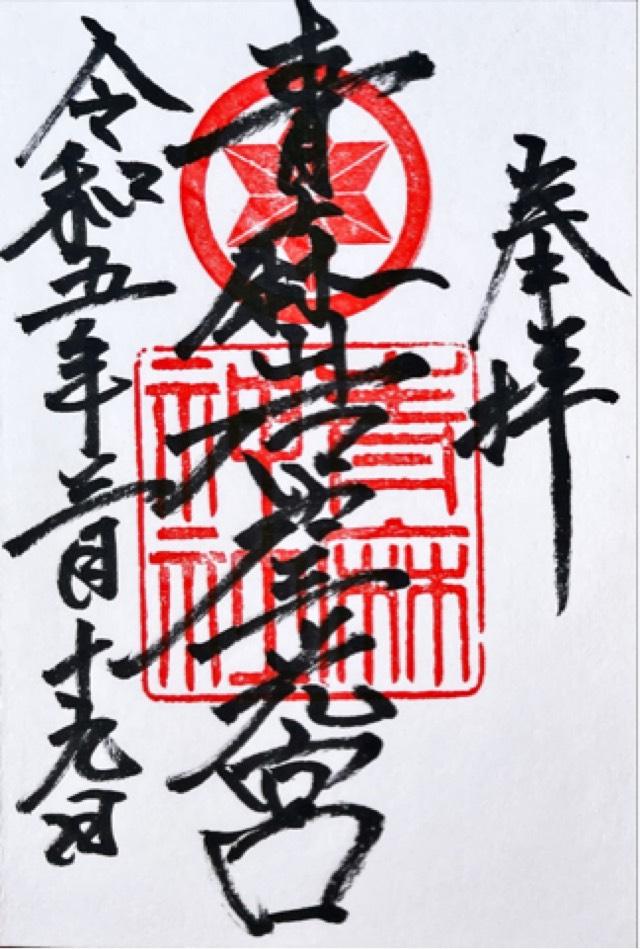 奉拝
青麻岩戸三光宮
青麻
神社
令和五年三月十九日